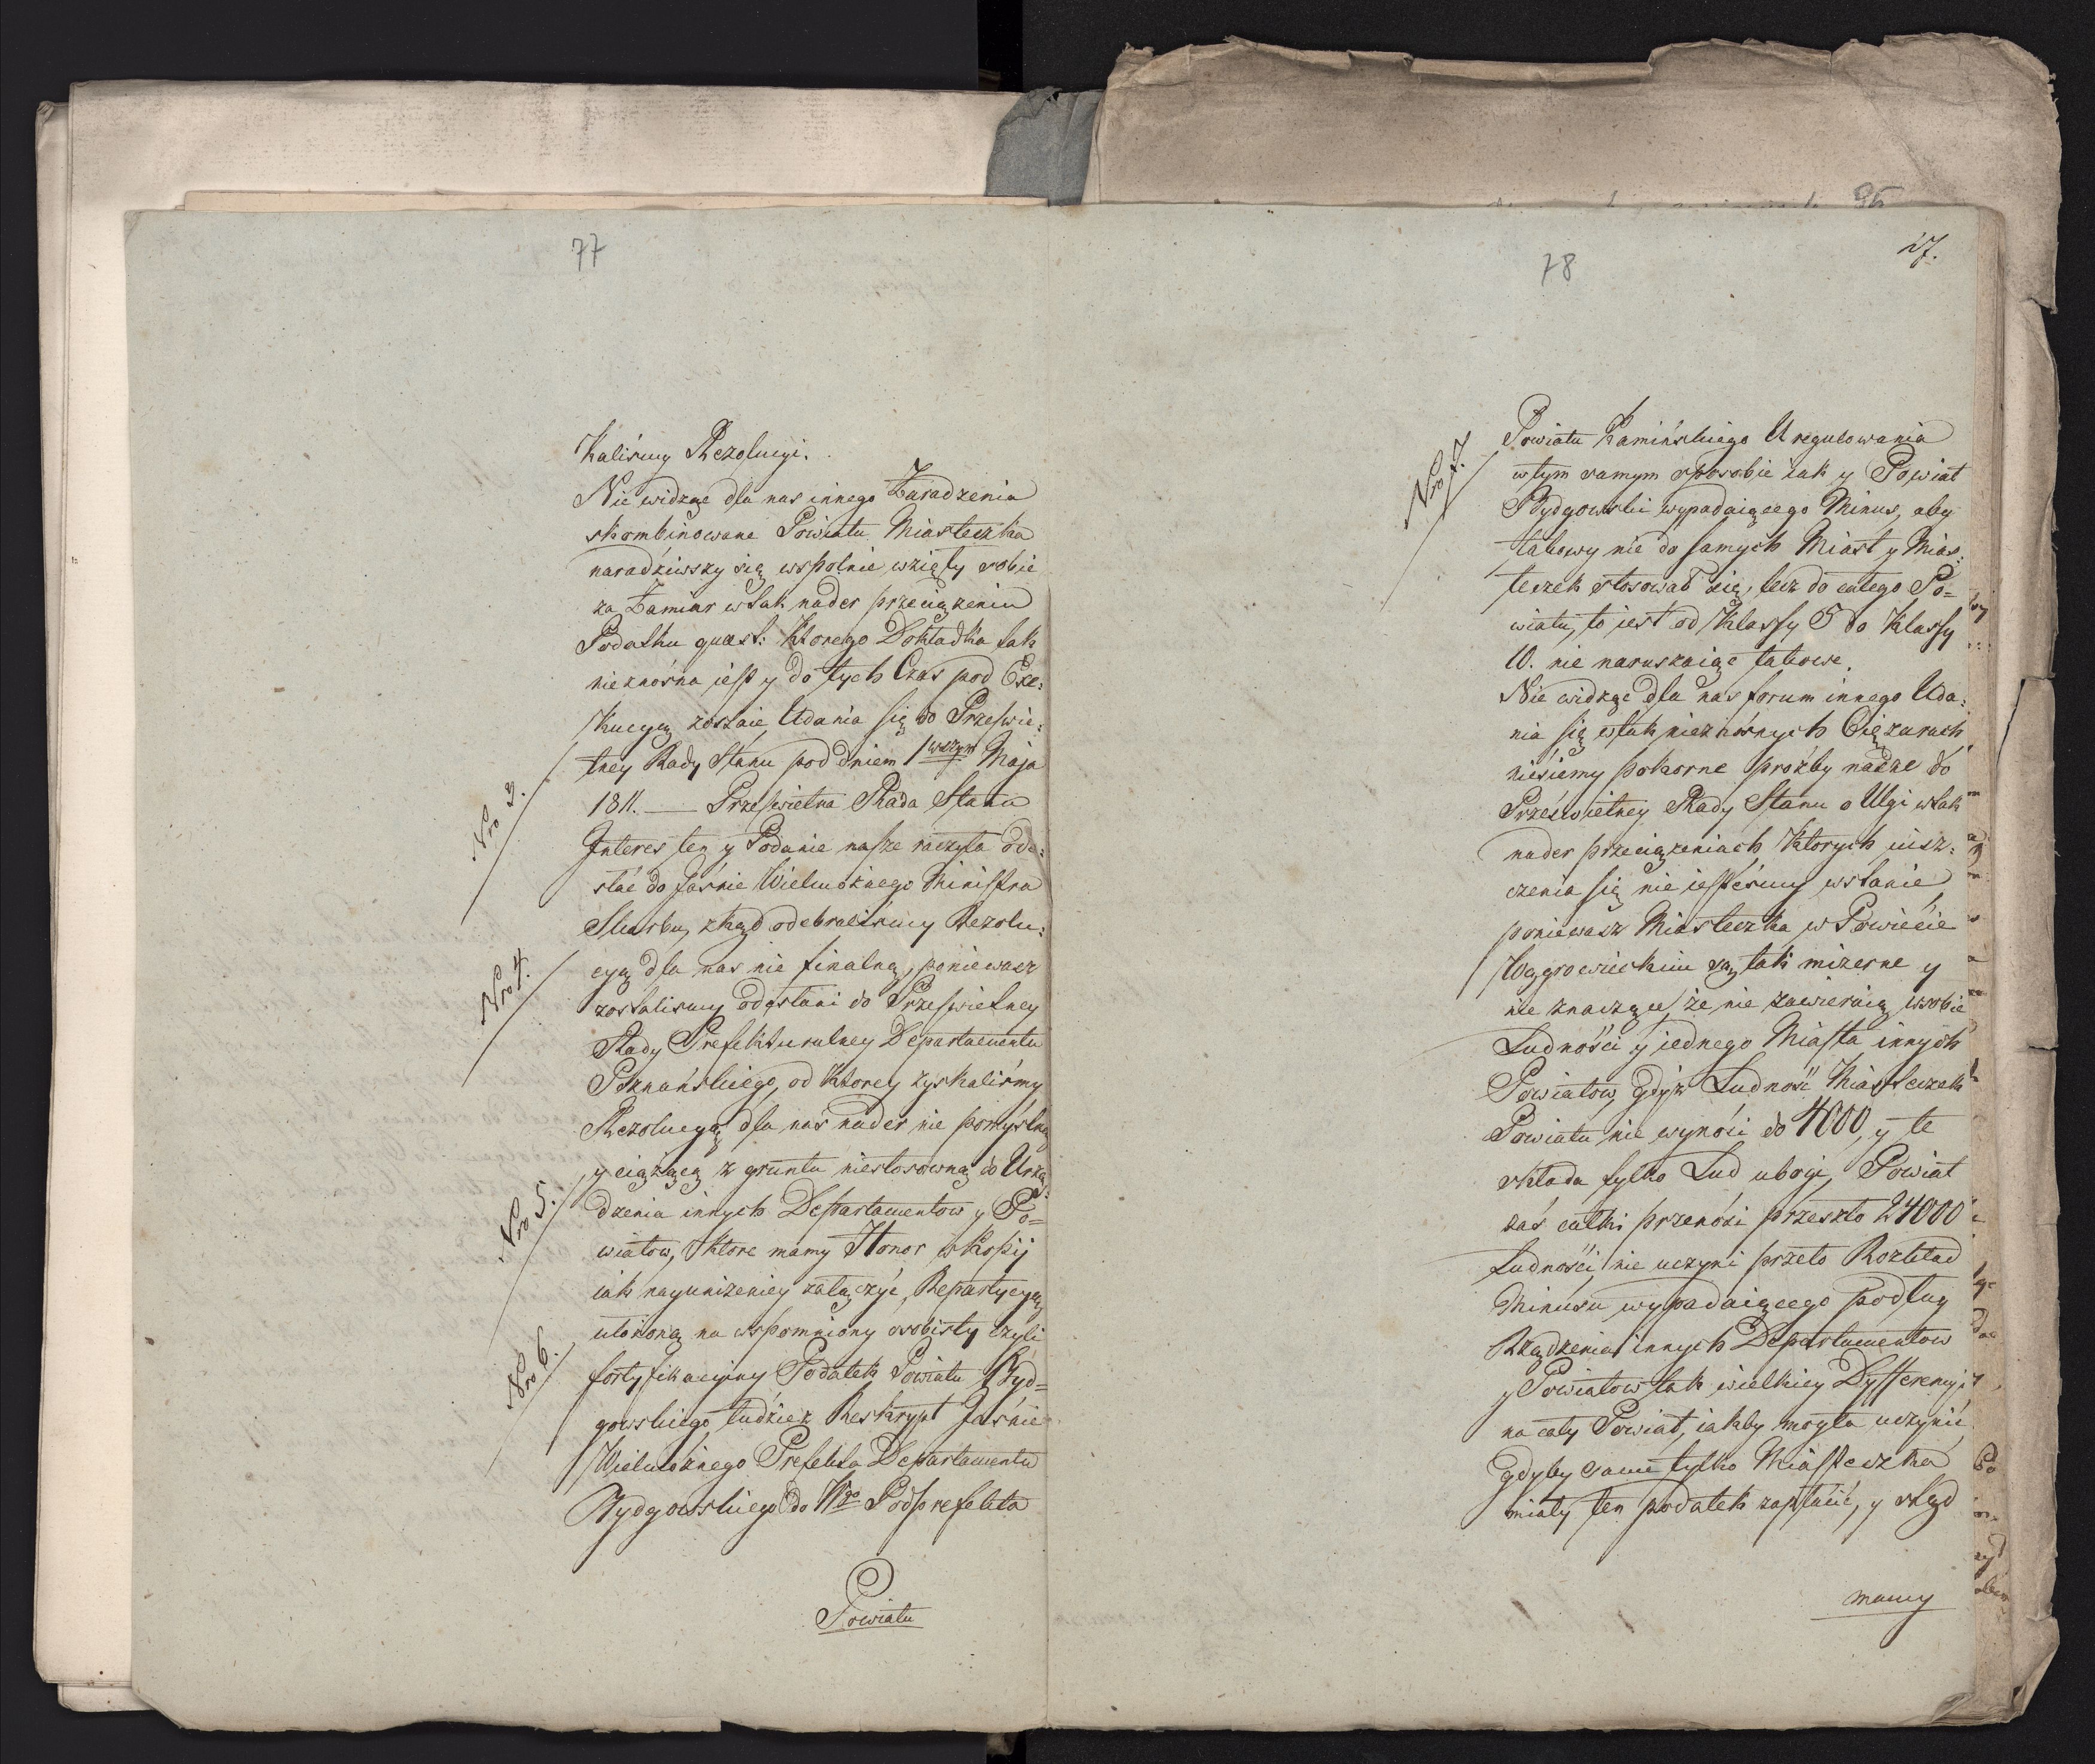 77
Kaliśmy Rezolucyi.
Nie widząc dla nas innego Zaradzenia
skombinowane Powiatu Miasteczka
naradziwszy się wspolnie wzięły sobie
za Zamiar w tak nader przeciążeniu
Podatku quaest: ktorego Dokładka tak
nieznośna jest y do tych Czas pod Exe:
kucyą zostaie, Udania się do Przeswie:
tney Rady Stanu pod dniem 1wszym Maja
Nro 3.
1811. — Przeswietna Rada Stanu
Interes ten y Podanie nasze raczyła ode:
słać do Jaśnie Wielmożnego Ministra
Skarbu, zkąd odebraliśmy Rezolu:
Nro 4.
cyą dla nas nie finalną, poniewasz
zostalismy odesłani do Przeswietney
Rady Prefekturalney Departamentu
Poznańskiego, od ktorey zyskaliśmy
Rezolucyą dla nas nader nie pomyslną
y ciążącą z gruntu niestosowną do Urzą:
Nro 5.
dzenia innych Departamentow y Po=
wiatow, ktore mamy Honor w Kopij
iak nayuniżeniey załączyć, Repartycyą
ułożoną na wspomniony osobisty czyli
Nro 6.
fortyfikacyiny Podatek Powiatu Byd=
gowskiego tudzież Reskrypt Jaśnie
Wielmożnego Prefekta Departamentu
Bydgowskiego do Wgo Podprefekta
Powiatu
78
27.
Nro 7.
Powiatu Kamińskiego Uregulowania
w tym samym sposobie iak y Powiat
Bydgowski wypadaiącego Minus, aby
takowy nie do samych Miast y Mias:
teczek stosował się, lecz do całego Po=
wiatu, to iest od Klassy 5 do Klassy
10. nie naruszaiąc takowe.
Nie widząc dla nas forum innego Uda:
nia się w tak nieznośnych Ciężarach
niesiemy pokorne proźby nasze do
Prześwietney Rady Stanu o Ulgi w tak
nader przeciążeniach ktorych uisz:
czenia się nie iesteśmy wstanie
poniewasz Miasteczka w Powiecie
Wągrowieckim są tak mizerne y
nie znaczące, że nie zawieraią w sobie
Ludności y iednego Miasta innych
Powiatow, gdyż Ludność Miasteczek
Powiatu nie wynosi do 4000, y te
składa tylko Lud ubogi, Powiat
zaś całki przenosi przeszło 24000
Ludności, nie uczyni przeto Rozkład
Minusu wypadaiącego podług
Rządzenia innych Departamentow
y Powiatow tak wielkiey Dyfferencyi
na cały Powiat, iakby mogła uczynić
gdyby same tylko Miasteczka
miały ten podatek zapłacić, y zkąd
mamy